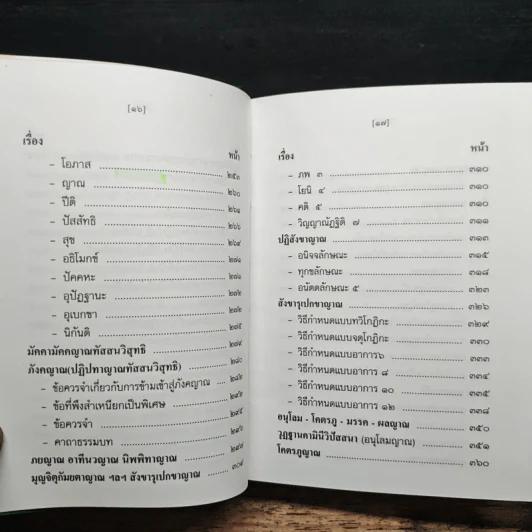 [๑๖]
เรื่อง หน้า
- โอภาส ๒๕๓
- ญาณ ๒๖๐
- ปีติ ๒๖๑
- ปัสสัทธิ
- สุข ๒๖๙
- อธิโมกข์ ๒๗๑
- ปัคคหะ ๒๗๑
- อุปัฏฐานะ ๒๗๒
- อุเบกขา
- นิกันติ ๒๗๕
มัคคามัคคญาณทัสสนวิสุทธิ
ภังคญาณ(ปฏิปทาญาณทัสสนวิสุทธิ) ๒๘๐
- ข้อควรจำเกี่ยวกับการข้ามเข้าสู่ภังคญาณ
- ข้อที่พึงสำเหนียกเป็นพิเศษ
- ข้อควรจำ
- คาถาธรรมบท
ภยญาณ อาทีนวญาณ นิพพิทาญาณ
มุญจิตุกัมยตาญาณ ฯลฯ สังขารุเปกขาญาณ
[๑๗]
เรื่อง หน้า
- ภพ ๓ ๓๑๐
- โยนิ ๔ ๓๑๐
- คติ ๕ ๓๑๐
- วิญญาณัฏฐิติ ๗ ๓๑๑
ปฏิสังขาญาณ ๓๑๓
- อนิจจลักษณะ ๓๑๕
- ทุกขลักษณะ ๓๑๘
- อนัตตลักษณะ ๕ ๓๒๓
สังขารุเปกขาญาณ ๓๒๖
- วิธีกำหนดแบบทวิโกฏิกะ ๓๒๙
- วิธีกำหนดแบบจตุโกฏิกะ ๓๓๐
- วิธีกำหนดแบบอาการ๖ ๓๓๓
- วิธีกำหนดแบบอาการ ๘ ๓๓๔
- วิธีกำหนดแบบอาการ ๑๐ ๓๓๕
- วิธีกำหนดแบบอาการ ๑๒ ๓๓๘
อนุโลม - โคตรภู - มรรค - ผลญาณ ๓๕๐
วุฏฐานคามินีวิปัสสนา (อนุโลมญาณ) ๓๕๑
โคตรภูญาณ ๓๖๐